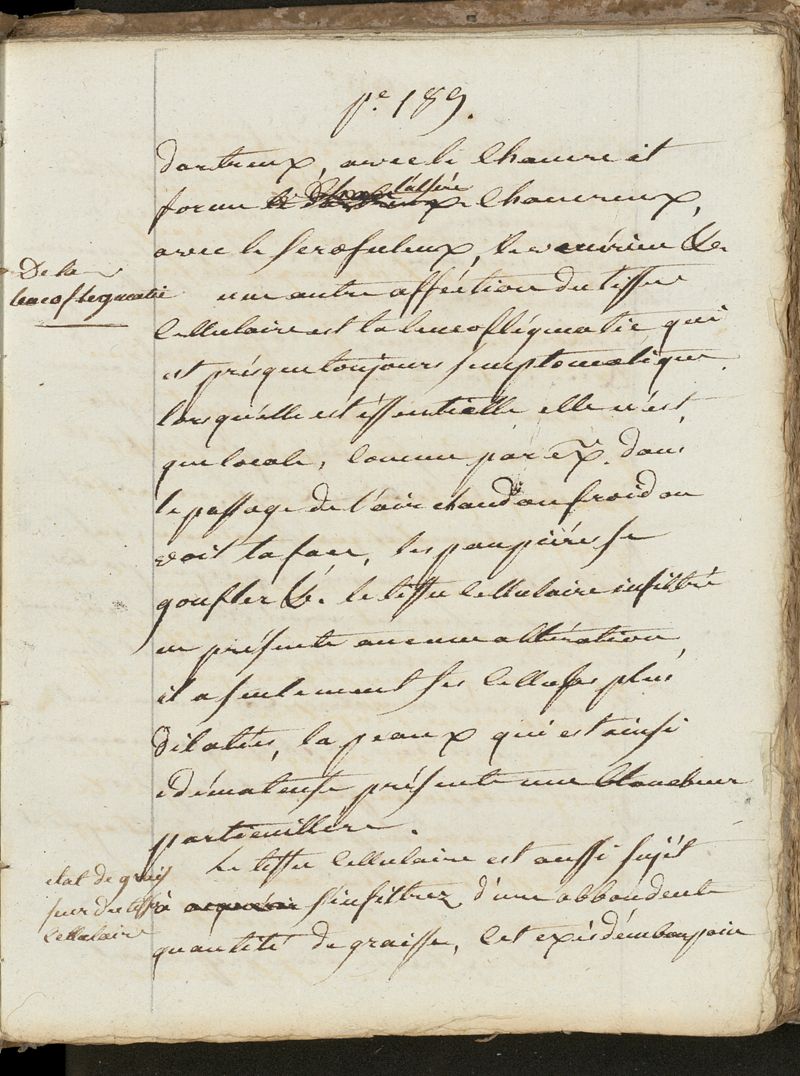 pe 189.
dartreux, avec le Chancre et
forme l'ulsére Chancreux,
avec le scrofuleux, le vénérien &c.
De la
leucoflegmatie
une autre afféction du tissu
Cellulaire est la leucoflégmatie qui
est présque toujours simptomatique
lorsqu'elle est éssentielle elle n'est
que locale, comme par ex. dans
le passage de l'air chaud au froid on
voit la face, les paupiéres se
gonfler &c. le tissu Cellulaire infiltré
ne présente aucune altération,
il a seulement ses Cellules plus
dilatés, la peaux qui est ainsi
edémateuse présente une blancheur
particuillère.
etat de grais
seur du tissu
Cellulaire
Le tissu Cellulaire est aussi sujét
à s'infiltrer d'une abbondente
quantité de graisse, Cet exés d'embonpoin